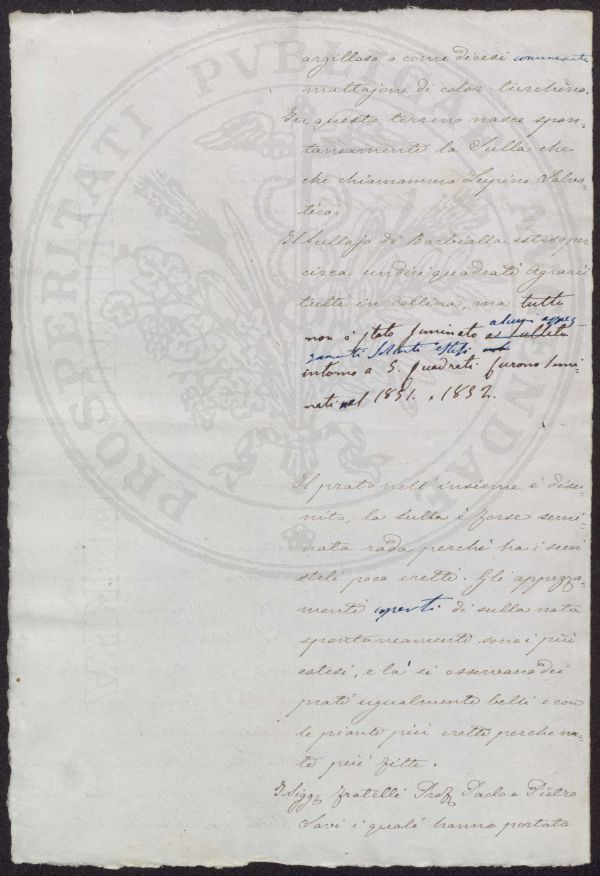 argilloso o come dicesi comunemente
mattajone di color turchino.
In questo terreno nasce spon-
taneamente la Sulla che
che chiamammo Lupino Salva-
tico.
Il Sullajo di Barbialla esteso per
circa undici quadrati Agrarii
tutti in collina, ma tutto
non è stato seminato a sulleto alcuni appez-
zamenti soltanto estesi
intorno a 5. quadrati furono semi-
nati nel 1851. e 1852.
Il prato nell'insieme è disu-
nito, la sulla è forse semi-
nata rada perchè ha i suoi
steli poco eretti. Gli appezza-
menti coperti di sulla nata
spontaneamente sono i più
estesi, e là si osservano dei
prati ugualmente belli e con
le piante più erette perchè na-
te più fitte.
I Sigg. fratelli Prof. Paolo e Pietro
Savi i quali hanno portato
PROSPERITATI PVBLICAE AVGENDAE